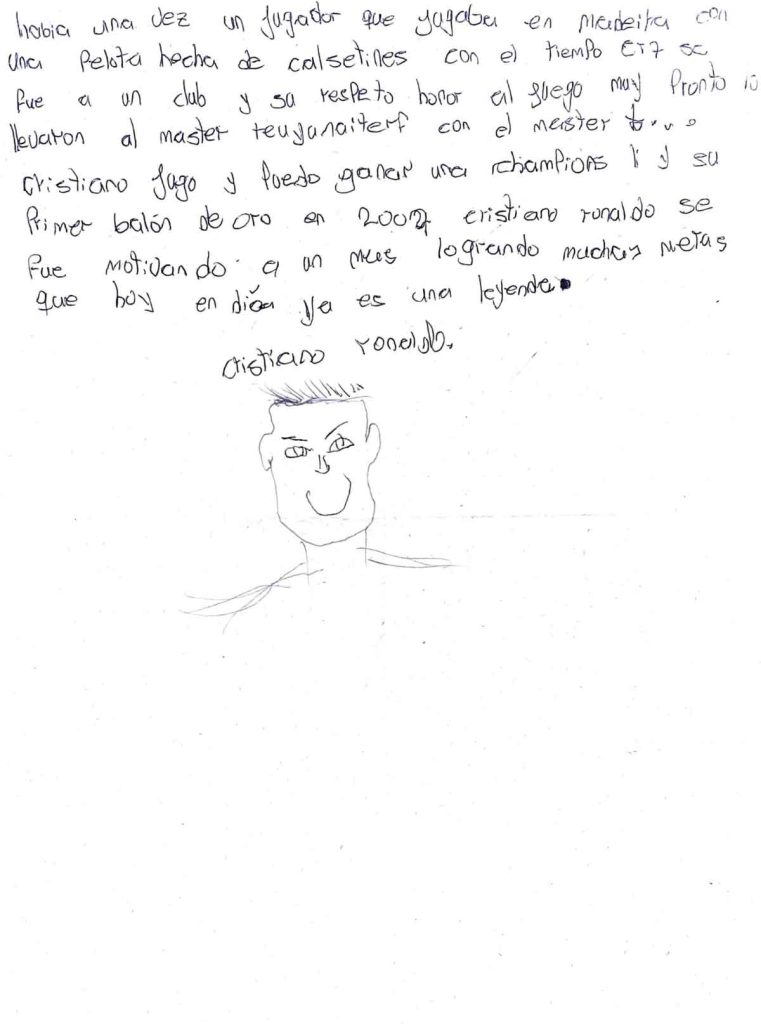 habia una vez un jugador que jugaba en madeira con
una Pelota hecha de calsetines con el tiempo CR7 se
fue a un club y su respeto honor al juego muy Pronto lo
llevaron al master teuyanaiterf con el meister t...
Cristiano Jugo y Puedo ganar una champions li y su
Primer balón de oro en 2007 cristiano ronaldo se
fue motivando a un mas logrando muchas metas
que hoy en día ya es una leyenda.
Cristiano ronaldo.